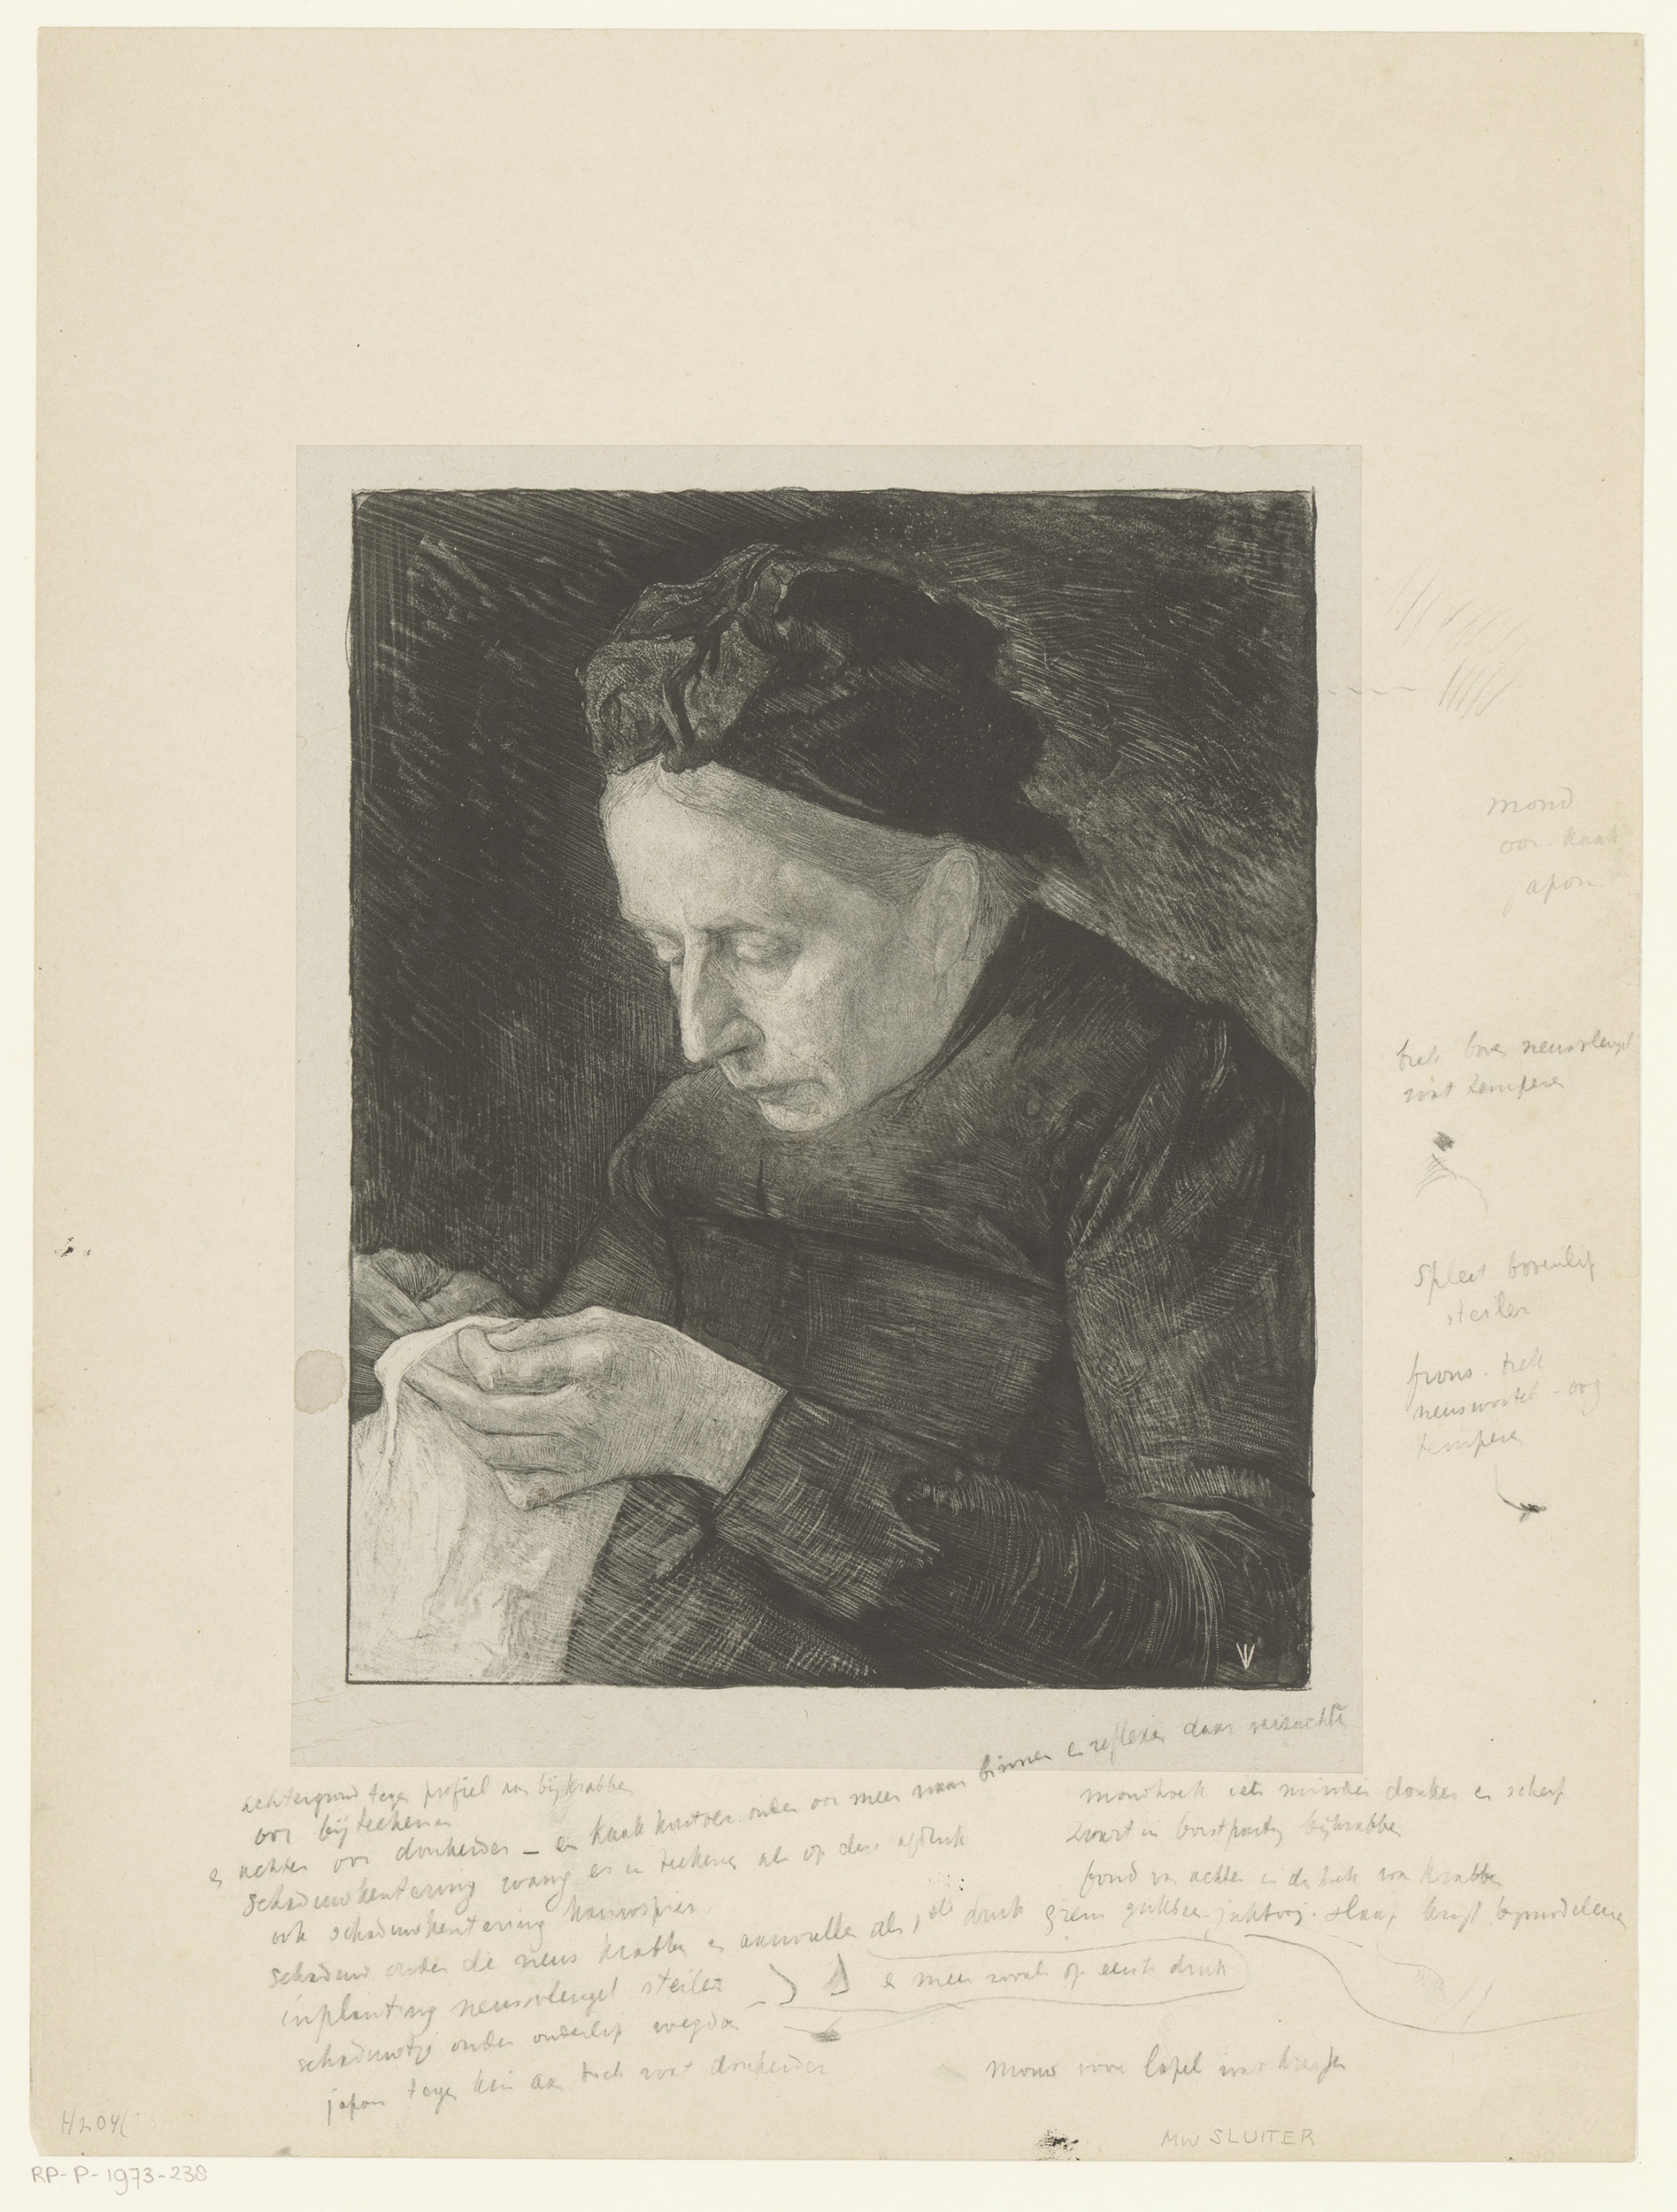 mond
oor kaak
japon
trek boven neusvleugel
wat temperen
spleet bovenlip
steiler
frons. trek
neuswortel - oog
temperen
binnen en reflexen daar verzachten
achtergrond tegen profiel aan bijkrabben
oor bijteekenen
en achter oor donkerder – en kaak kontoer onder oor meer naar
schaduwkentering wang er in teekenen als op deze afdruk
ook schaduwkentering kauwspier
schaduw onder de neus krabben en aanvullen als 1ste druk
inplanting neusvleugel steiler
en meer zooals op eerste druk
schaduwtje onder onderlip wegdoen
japon tegen kin aan toch wat donkerder
mondhoek iets minder donker en scherp
zwart in borstpartij bijkrabben
fond van achter in de hoek wat krabben
grens jukbeen slaap
mouw lapel wat
H204
MW SLUITER
RP-P-1973-238